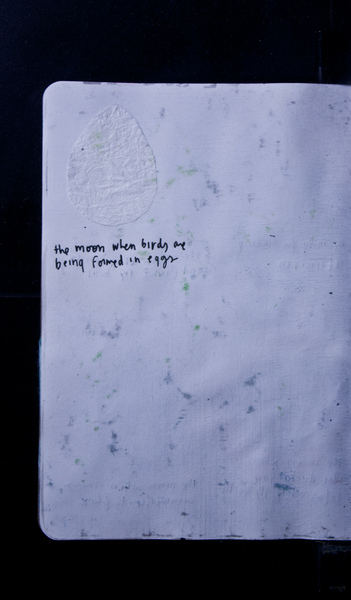 the moon when birds are
being formed in eggs